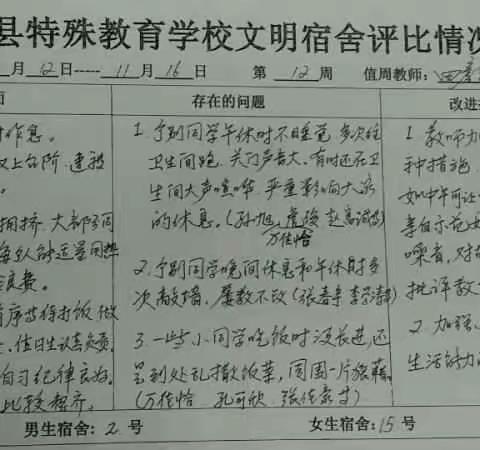 县特殊教育学校文明宿舍评比情况
月12日-----11月16日 第12周 值周教师:
面 存在的问题 改进
作息。
上台阶
拥挤,大部分同
良费。
有序等待打饭
值日生认真负责。
自习纪律良好。
比较整齐。
1.个别同学午休时不睡觉,多次往
卫生间跑,关门声音大,有时还在卫
生间大声喧哗,严重影响大家
的休息。(孙旭、
万佳怡
2.个别同学晚间休息和午休时多
次敲墙,屡教不改(张春丰
3.一些小同学吃饭时没长进,还
是到处乱撒饭菜,周围一片狼藉
(万佳怡 孔可欣
1.教师加
种措施
如中午可让
噪音,对
批评教
2.加强
生活能力
男生宿舍:2号 女生宿舍:15号